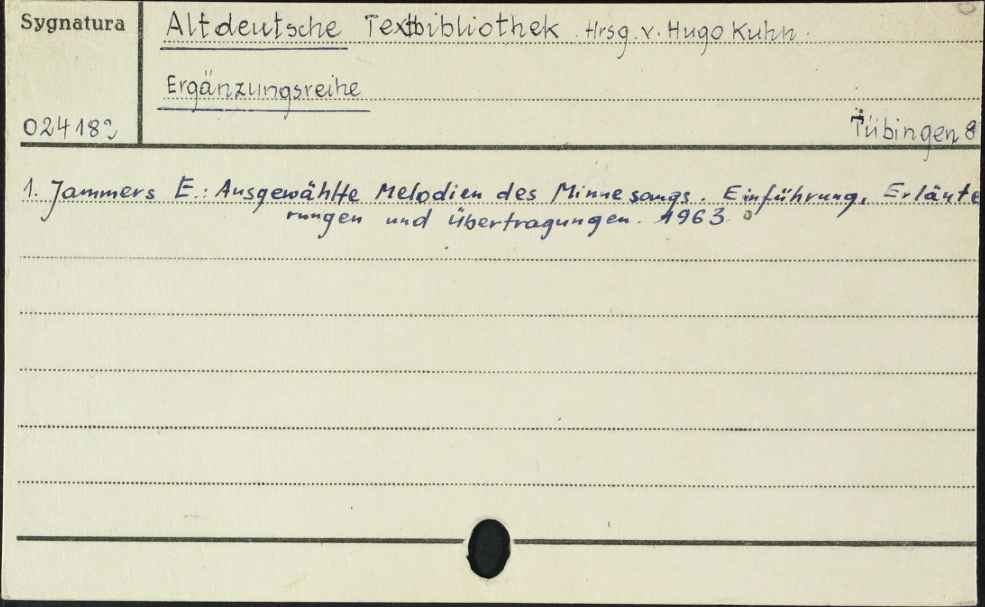 Sygnatura
Altdeutsche Textbibliothek. Hrsg. v. Hugo Kuhn.
Ergänzungsreihe
Tübingen 8
1. Jammers E.: Ausgewählte Melodien des Minnesangs. Einführung, Erläute
rungen und Übertragungen. 1963.